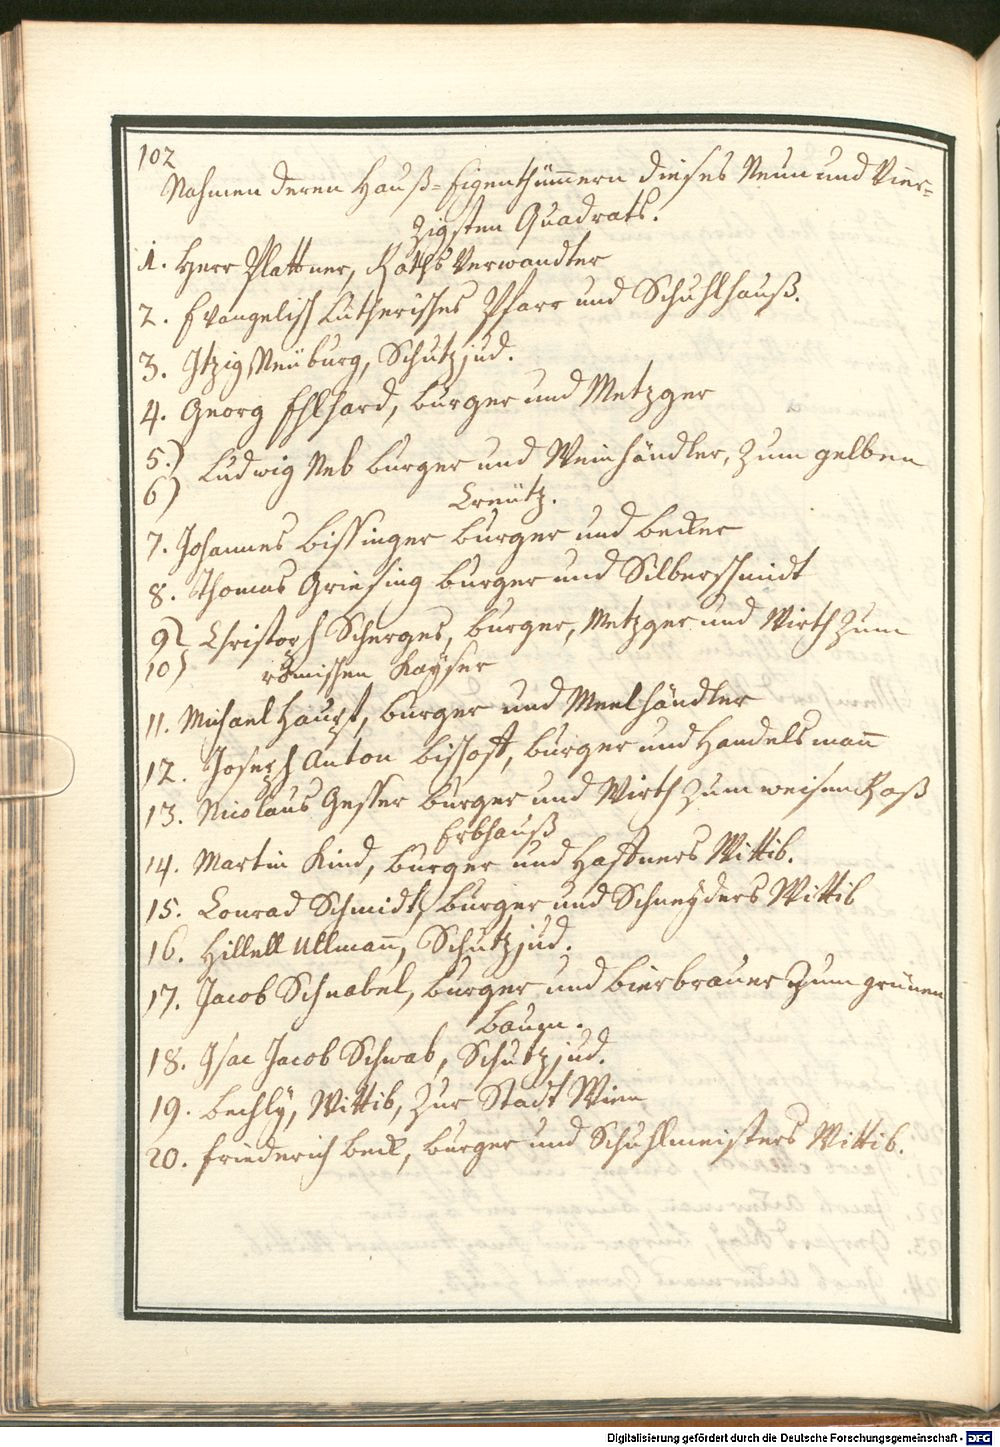 102
Nahmen deren Hauß-Eigenthümmern dieses Neun und Vier-
zigsten Quadrats.
1. Herr Plattner, Raths Verwandter
2. Evangelisch Lutherisches Pfarr und Schuhlhauß.
3. Itzig Neüburg, Schutzjud.
4. Georg Ehlhard, burger und Metzger
5.)
6) Ludwig Neb burger und Weinhändler, zum gelben
Creütz.
7. Johannes bissinger burger und becker
8. Thomas Griesing burger und Silberschmidt
9) Christoph Scherges, burger, Metzger und Wirth zum
10) römischen Kayser
11. Michael Haupt, burger und Meelhändler
12. Joseph Anton bischoff, burger und Handelsmann
13. Nicolaus Gesser burger und Wirth zum weisen Roß
Erbhauß
14. Martin Kind, burger und Haffners Wittib.
15. Conrad Schmidt, burger und Schneyders Wittib
16. Hillell Ullmann, Schutzjud.
17. Jacob Schnabel, burger und bierbrauer zum grünen
baum.
18. Isac Jacob Schwab, Schutzjud.
19. bechly, Wittib, zur Stadt Wien
20. friederich beck, burger und Schuhlmeisters Wittib.
Digitalisierung gefördert durch die Deutsche Forschungsgemeinschaft - DFG